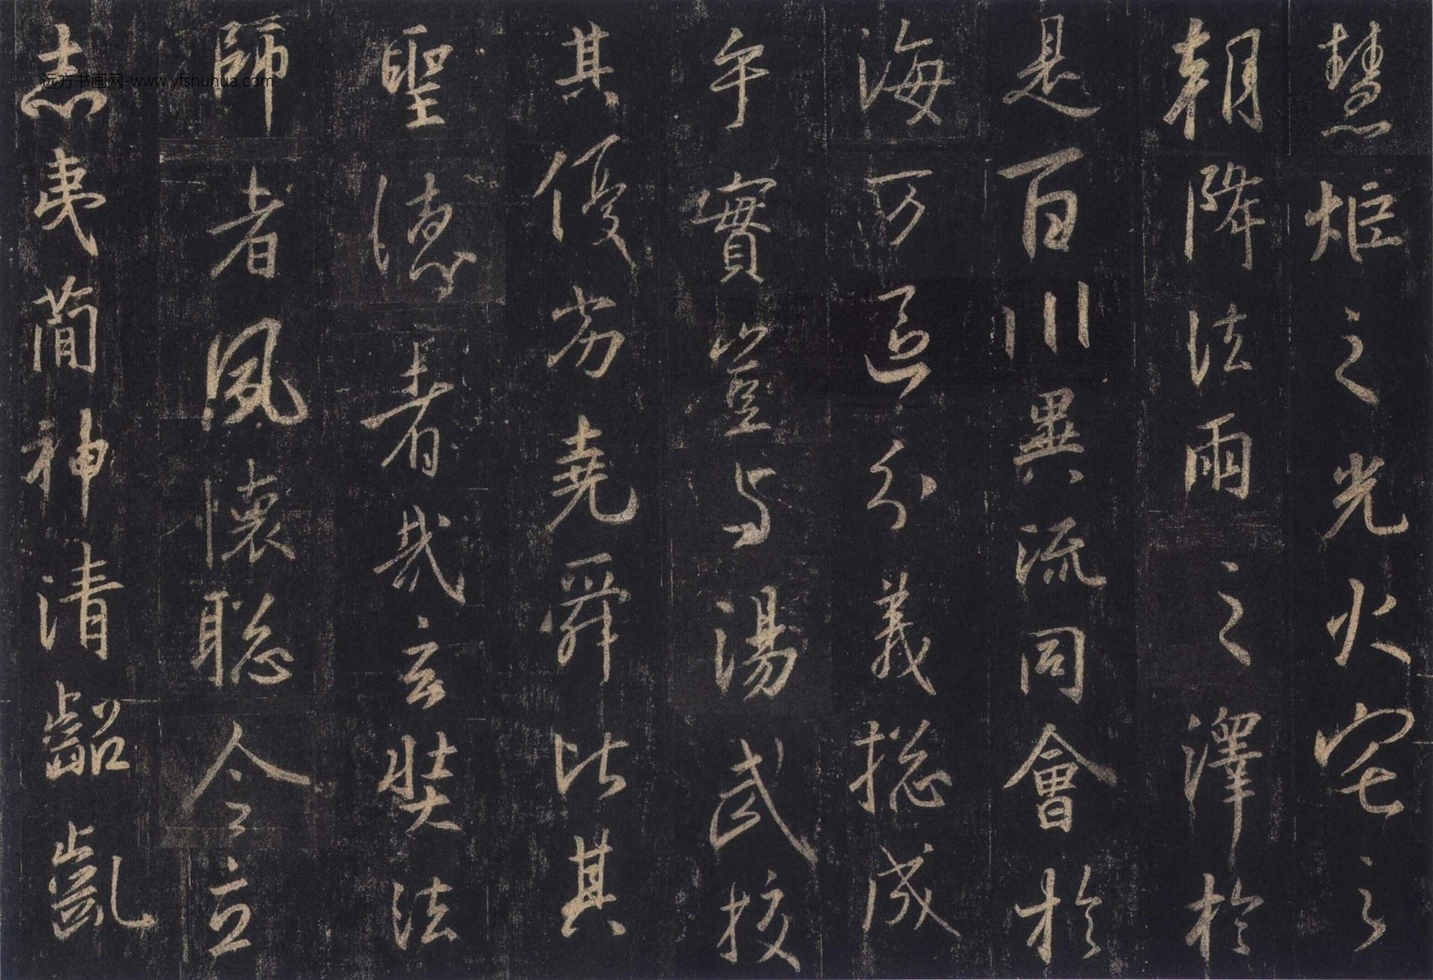 慧炬之光火宅之
朝降法雨之澤於
是百川異流同會於
海万區分義總成
乎實豈與湯武校
其優劣堯舜比其
聖德者哉玄奘法
師者夙懷聰令立
志夷簡神清齠齔
远方书画网-www.yfshuhua.com